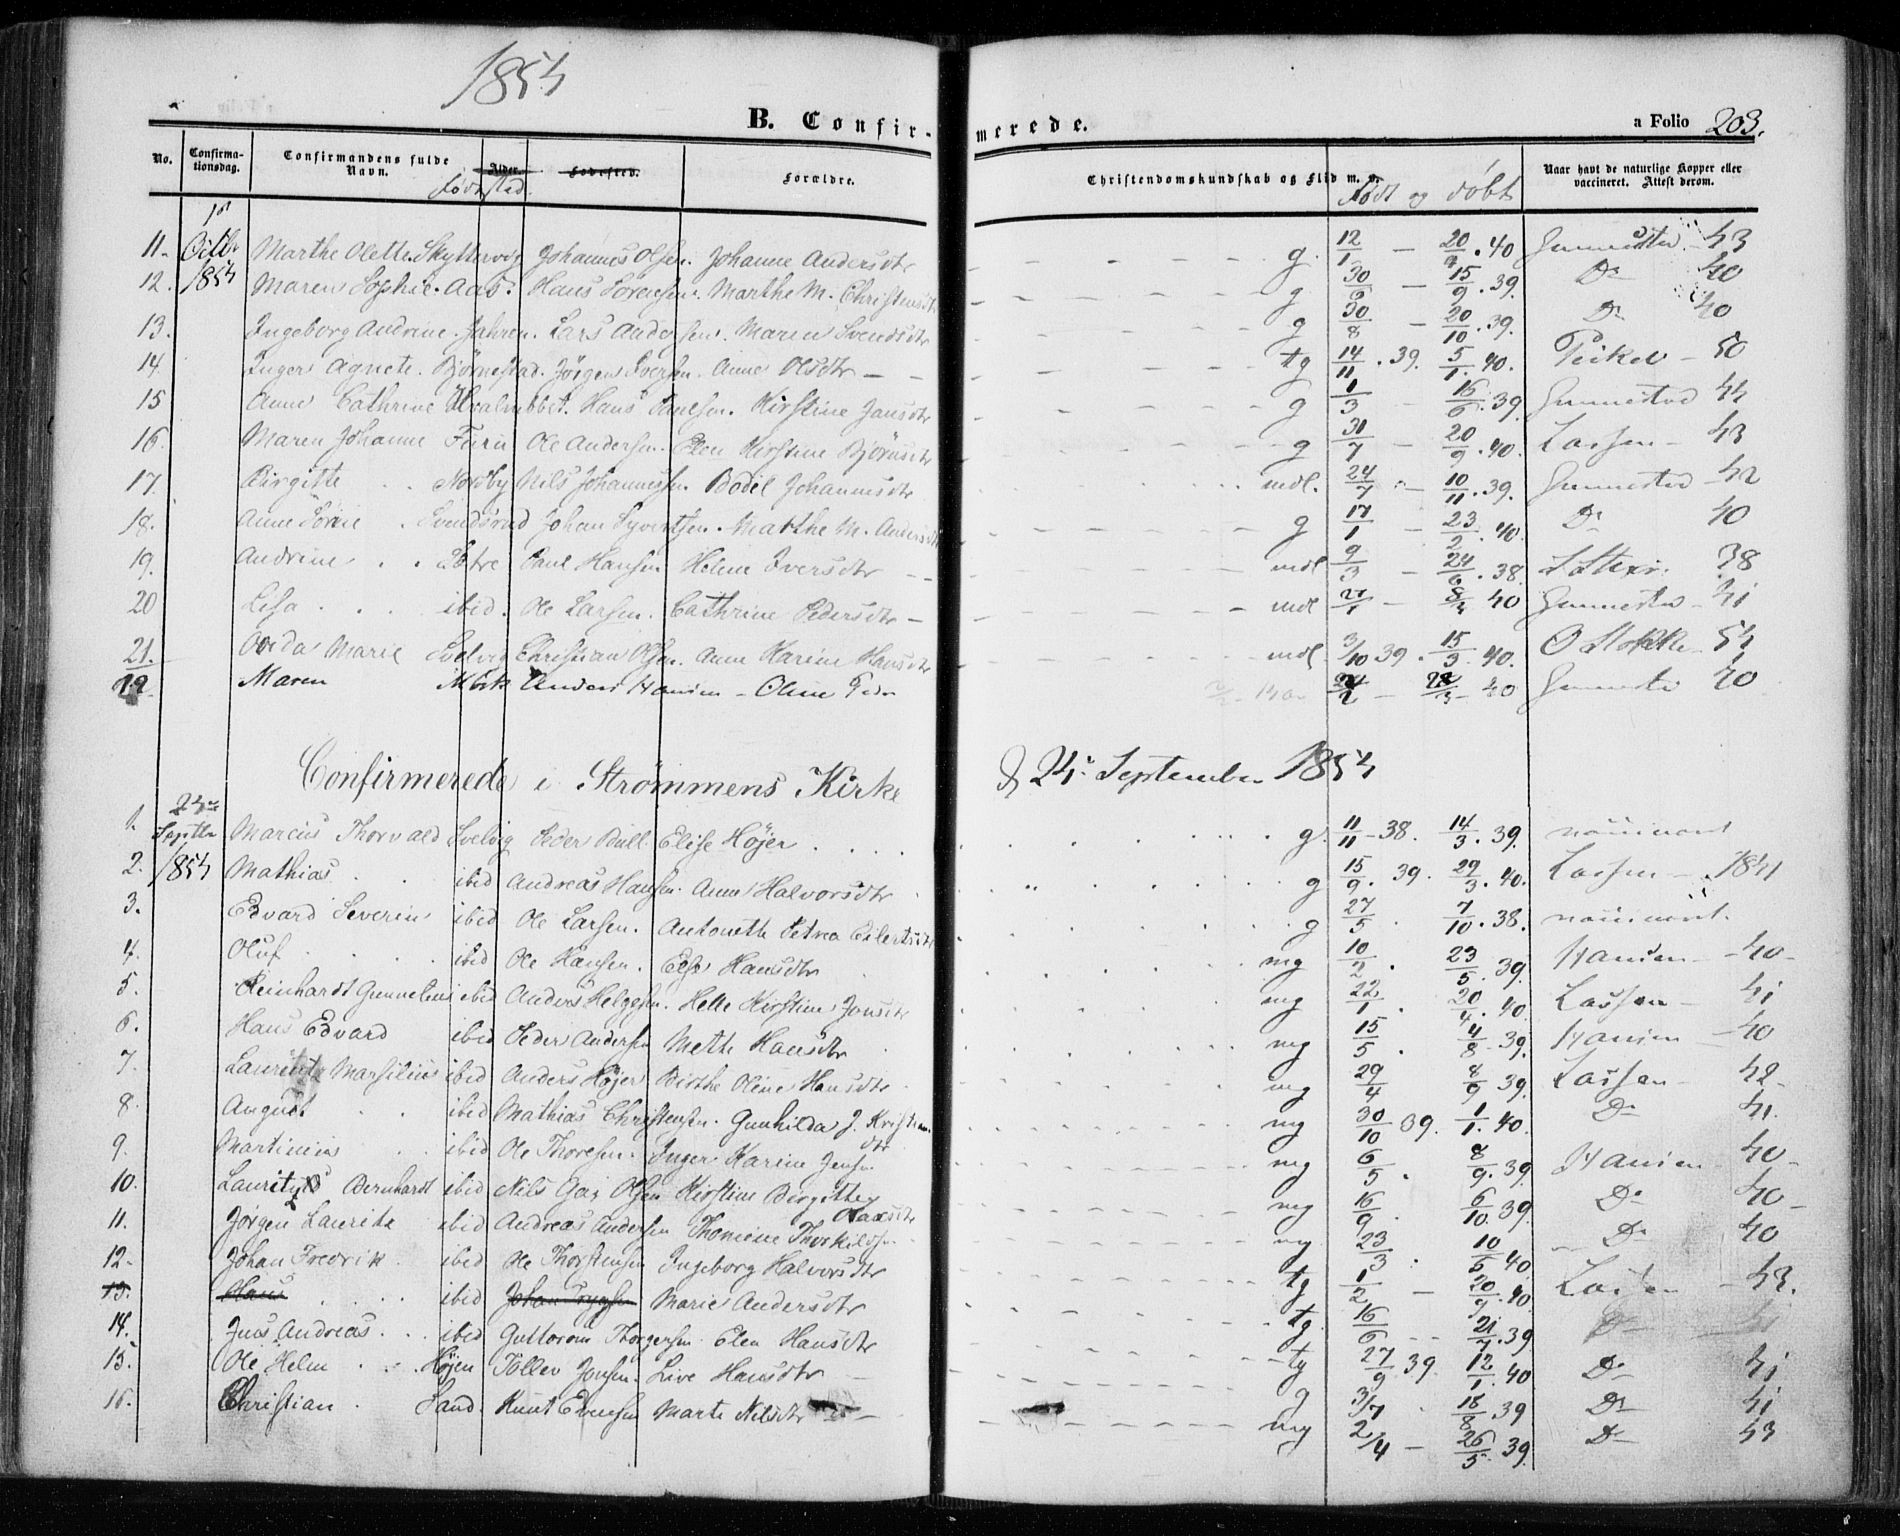 1854
B. Confirmerede. a Folio 203.
No. Confirmationsdag. Confirmandens fulde Navn. Alder. Fødested. Forældre. Christendomskundskab og Flid m. v. Født og døbt Naar havt de naturlige Kopper eller vaccineret. Attest derom.
Fødested.
11. 1ste Octbr Marthe Olette Skyttervig Johannes Olsen. Johanne Andersdtr g. 12/1 — 20/4 . 40 Gunnestad 43
12. 1854 Maren Sophie. Aas. Hans Sørensen. Marthe M. Christensdtr g 30/6 — 15/9 . 39. Do 40
13. Ingeborg Andrine. Jahren. Lars Andersen. Maren Svendsdtr g 30/8 — 20/10 . 39. Do 40
14 Inger Agnete. Bjørnestad. Jørgen Iversen. Anne Olsdtr — tg 14/11 . 39. 5/1 . 40. — 50
15 Anne Cathrine Hvalsrabbet. Hans Paulsen. Kirstine Jansdtr g 1/3 — 16/6 . 39 Gunnestad 44
16. Maren Johanne Furu Ole Andersen. Elen Kirstine Bjørnsdtr g 31/7 — 20/9 . 40. Lassen — 43
17. Birgitte . . Nordby Nils Johannesen. Bodil Johannesdtr mdl. 24/7 — 10/11 . 39. Gunnestad — 42
18. Anne Sørine . Svendsrud Johan Syvertsen. Marthe M. Andersdtr g 17/1 — 23/2 . 40. Do 40
19. Andrine . . Østre Paul Hansen Helene Iversdtr — mdl 9/3 — 24/6 . 38. 38
20 Lisa . . . ibid. Ole Larsen. Cathrine Pedersdtr — mdl 27/1 — 8/3 40 Gunnestad — 41
21. Ovida Marie Svelvig Christian Olsen. Anne Karine Hansdtr mdl 3/10 39 . 15/3 . 40. 54
Maren Mörk Anders Hansen — Oline Peder 24/2 — 22/3 — 40 Gunnesta 40
Confirmerede i Strømmens Kirke d 24de September 1854
1. 24de Septbr Marcus Thorvald Svelvig Peder Bull. Elise Höjer . . . . g. 11/11 — 38. 14/3 . 39.
2. 1854 Mathias . . ibid Andreas Hansen. Anne Halvorsdtr g 15/9 . 39. 29/3 . 40. Lassen — 1841
3. Edvard Severin ibid Ole Larsen. Antonette Petrea Eilertsdtr g 27/5 . 7/10 . 38.
4. Oluf . . . . ibid Ole Hansen. Else Hansdtr mg 10/2 . 23/5 . 39. Hansen — 40 —
5. Reinhardt Gunnelius ibid Anders Helgesen. Helle Kirstine Jonsdtr mg 22/1 . 20/4 . 40. Lassen — 41
6. Hans Edvard ibid Peder Andersen Methe Hansdtr mg 15/5 . 4/8 . 39. Hansen — 40
7. Lauritz Marsilius ibid Anders Höjer Birthe Oline Hansdtr mg 29/4 8/9 39. Lassen — 42 —
8. August . . ibid Mathias Christensen. Gunhilda J. Kristiansdtr mg 30/10 39. 1/1 . 40. Do 41.
9. Martinius . . ibid Ole Thoresen. Inger Karine Jensen mg 6/5 . 8/9 . 39. Hansen 40 —
10. Lauritz Bernhardt ibid Nils Gaj Olsen Kirstine Birgitte mg 16/9 6/10 . 39. Do 40 —
11. Jørgen Lauritz ibid Andreas Andersen Thomine Thorkildsen mg 23/3 . 10/5 40 Do 40
12. Johan Fredrik . ibid Ole Thorstensen Ingeborg Halvorsdtr tg 1/2 — 20/9 . 40. Lassen — 43.
13. Hans . . . . ibid Johan Marie Andersdtr tg. 16/6 — 21/7 . 39 Do
14. Jens Andreas . . ibid Guttorm Torgersen. Elen Hansdtr tg 27/9 39. 12/1 . 40 Do 41
15. Ole Helm . . . Højen Tollev Jensen. Live Hansdtr g 3/7 . 18/8 . 39 Do 41
16. Christian . Sand. Knut Evensen Marte Nilsdtr — mg 2/4 — 26/5 . 39. Do 43